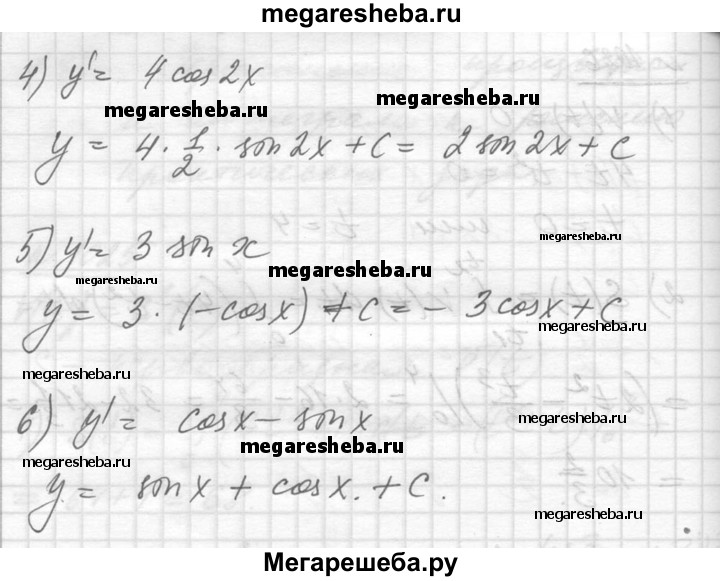 megaresheba.ru
4) y' = 4 cos 2x
megaresheba.ru megaresheba.ru
y = 4 · 1/2 · sin 2x + C = 2 sin 2x + C
5) y' = 3 sin x
megaresheba.ru
megaresheba.ru
megaresheba.ru
y = 3 · (-cos x) + C = - 3 cos x + C
megaresheba.ru
megaresheba.ru
6) y' = cos x - sin x
megaresheba.ru
megaresheba.ru
megaresheba.ru
y = sin x + cos x. + C.
megaresheba.ru
Мегарешеба.ру